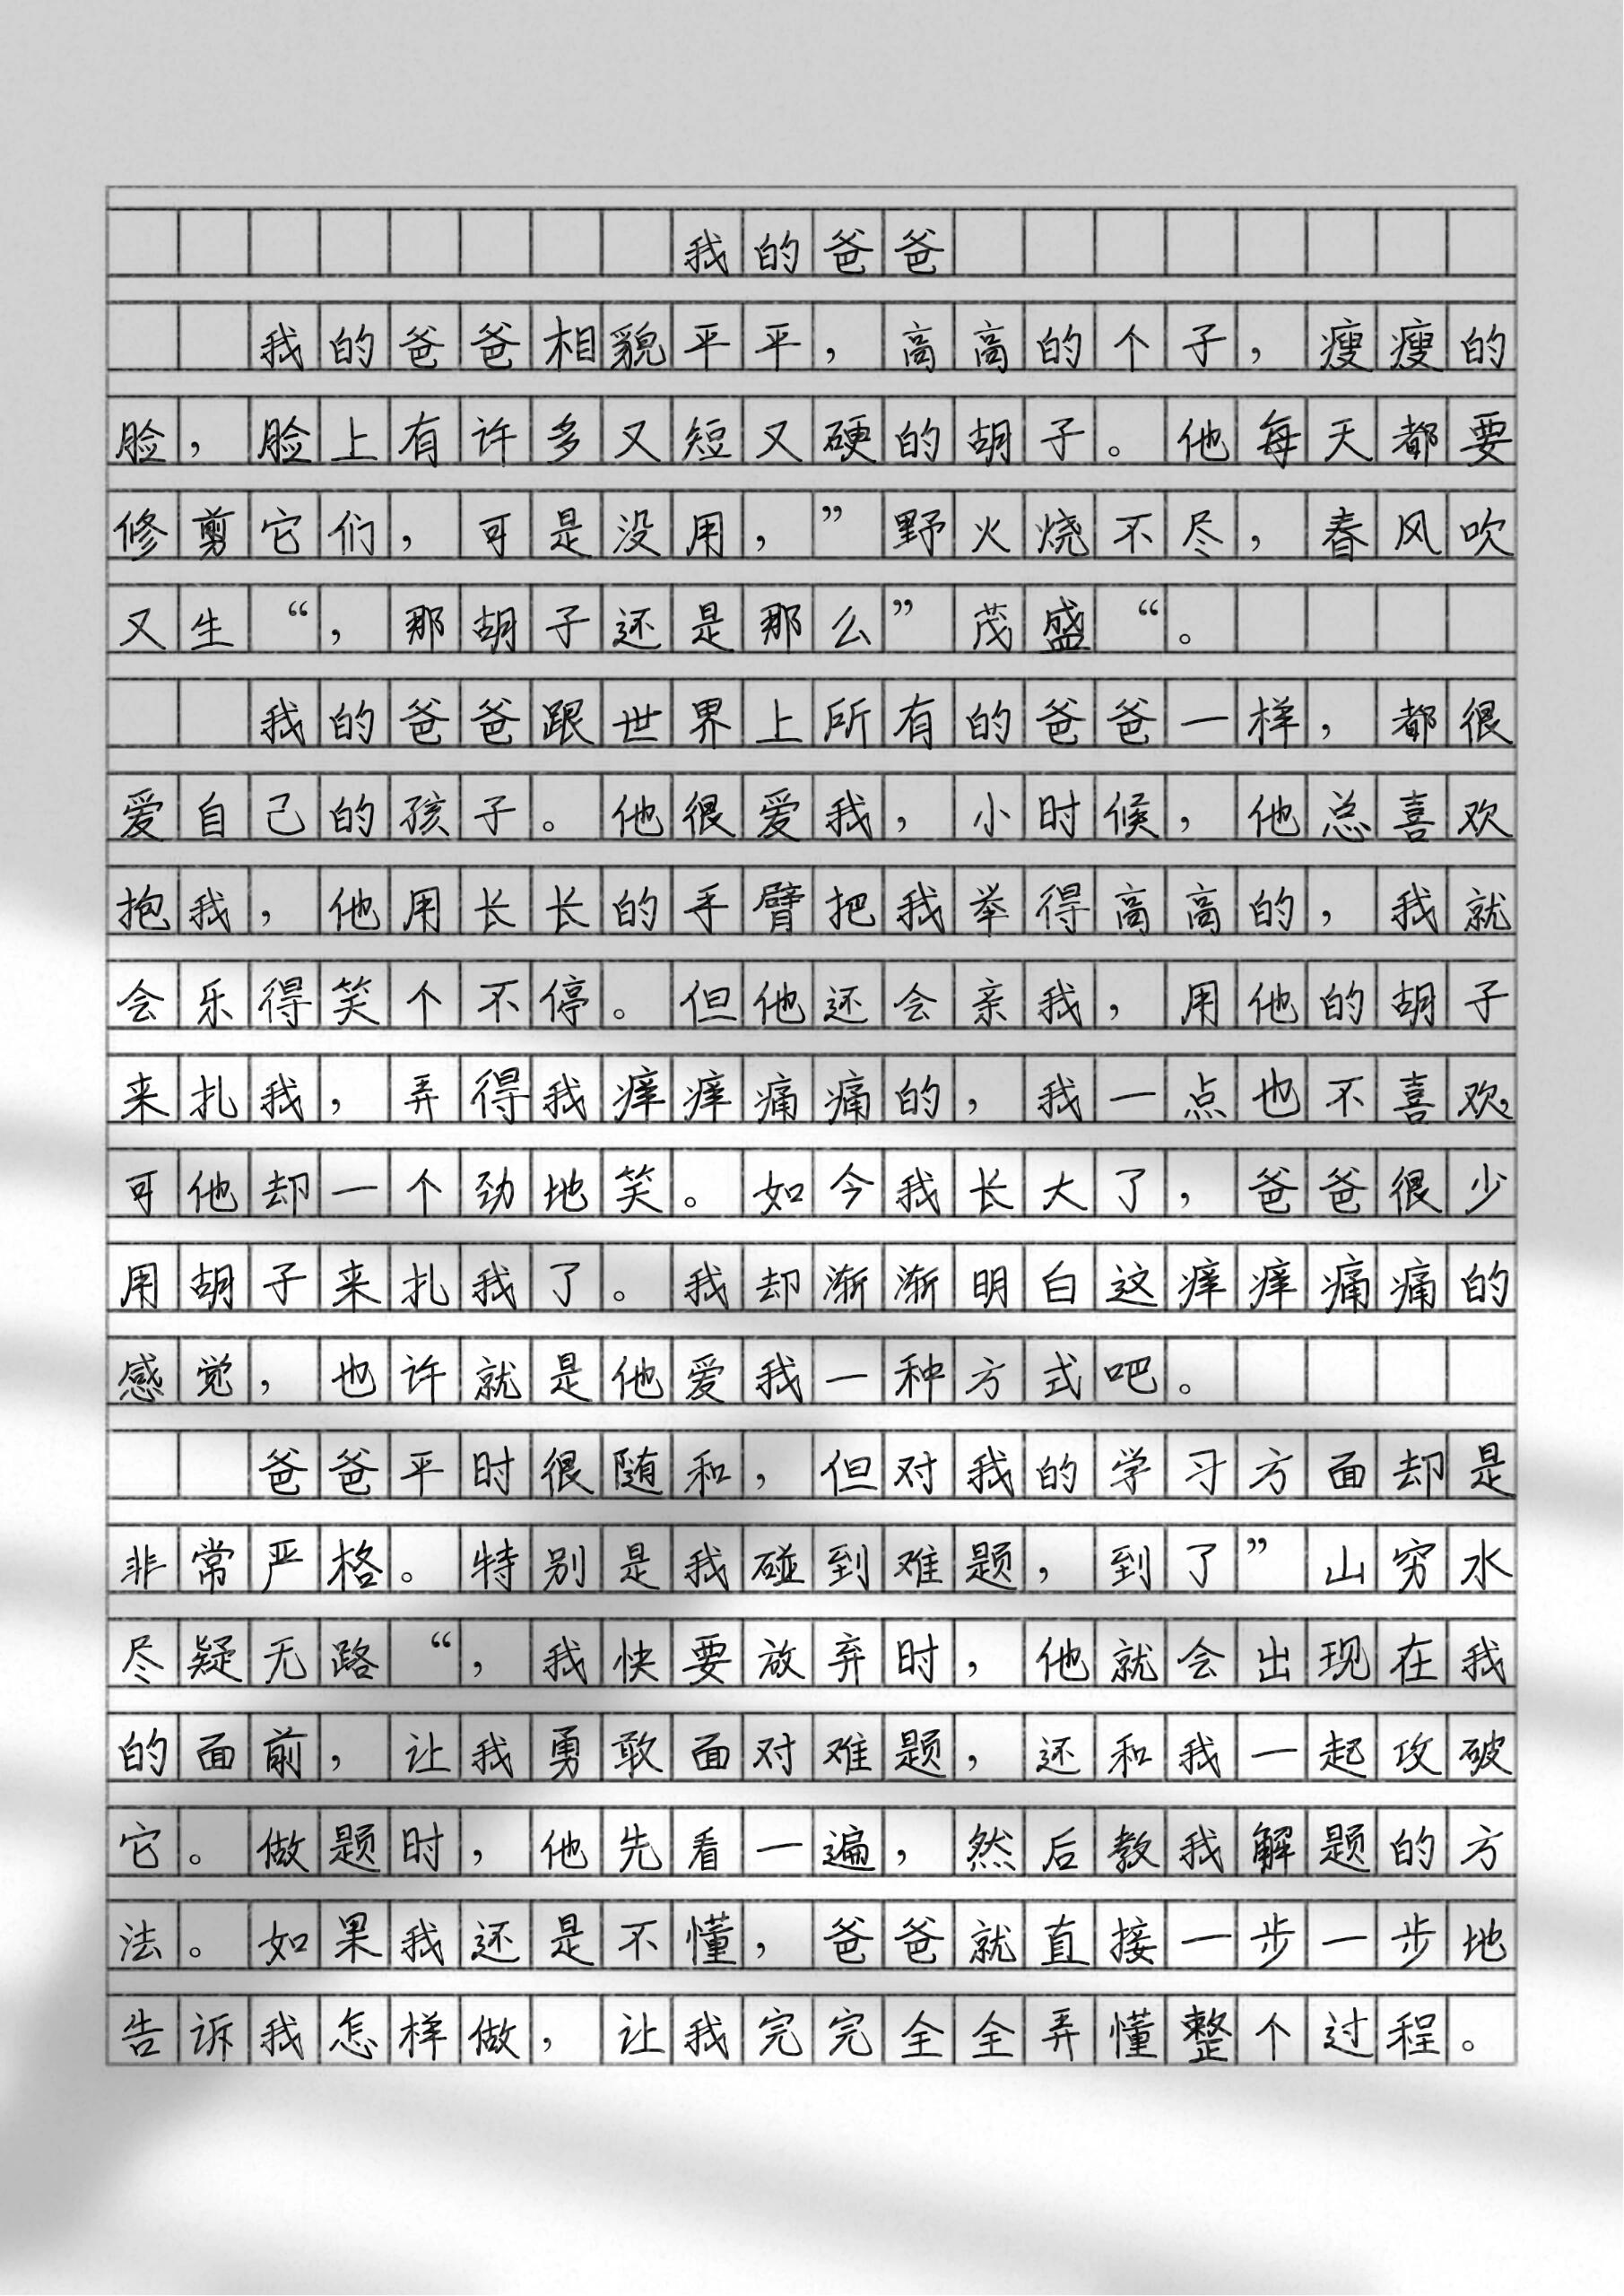 我的爸爸
我的爸爸相貌平平，高高的个子，瘦瘦的
脸，脸上有许多又短又硬的胡子。他每天都要
修剪它们，可是没用，”野火烧不尽，春风吹
又生“，那胡子还是那么”茂盛“。
我的爸爸跟世界上所有的爸爸一样，都很
爱自己的孩子。他很爱我，小时候，他总喜欢
抱我，他用长长的手臂把我举得高高的，我就
会乐得笑个不停。但他还会亲我，用他的胡子
来扎我，弄得我痒痒痛痛的，我一点也不喜欢，
可他却一个劲地笑。如今我长大了，爸爸很少
用胡子来扎我了。我却渐渐明白这痒痒痛痛的
感觉，也许就是他爱我一种方式吧。
爸爸平时很随和，但对我的学习方面却是
非常严格。特别是我碰到难题，到了”山穷水
尽疑无路“，我快要放弃时，他就会出现在我
的面前，让我勇敢面对难题，还和我一起攻破
它。做题时，他先看一遍，然后教我解题的方
法。如果我还是不懂，爸爸就直接一步一步地
告诉我怎样做，让我完完全全弄懂整个过程。